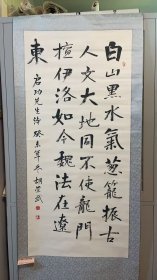 白山黑水氣蔥籠振古
人文大地同不使龍門
擅伊洛如今魏法在遼
東
启功先生詩 癸未年冬 胡崇武